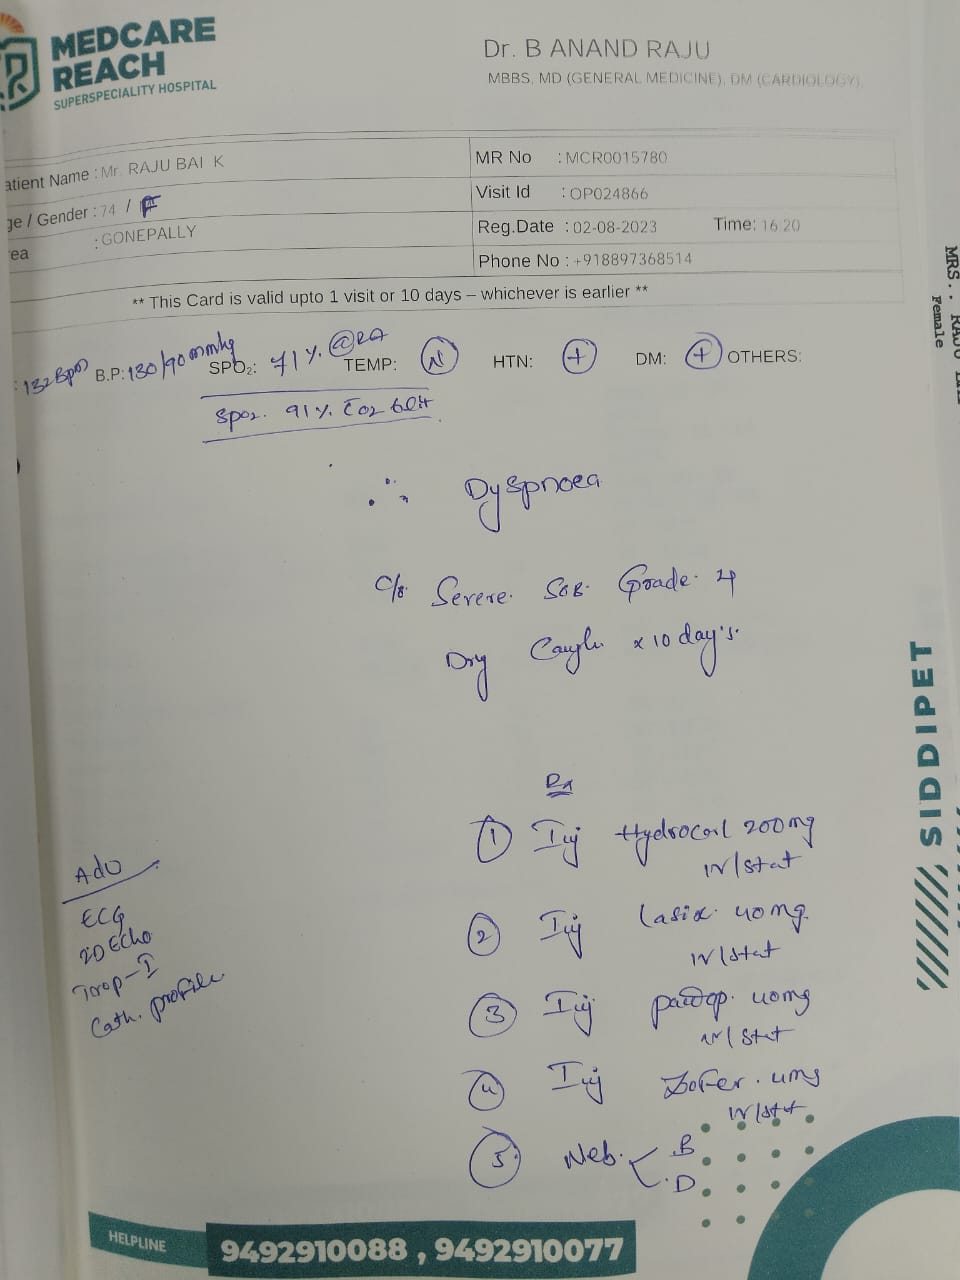 MEDCARE
REACH
SUPERSPECIALITY HOSPITAL
Dr. B ANAND RAJU
MBBS, MD (GENERAL MEDICINE), DM (CARDIOLOGY),
atient Name : Mr. RAJU BAI K
ge / Gender : 74 / F
ea : GONEPALLY
MR No : MCR0015780
Visit Id : OP024866
Reg.Date : 02-08-2023 Time: 16 20
Phone No : +918897368514
** This Card is valid upto 1 visit or 10 days – whichever is earlier **
: 132 Bpm B.P: 130/90 mmhg SPO₂: 71 % @RA TEMP: N HTN: + DM: + OTHERS:
Spo2. 91 % O2 6 lit
∴ Dyspnoea
C/o Severe SOB Grade 4
Dry Cough x 10 day's.
Rx
① Inj Hydrocort 200 mg
IV/Stat
② Inj Lasix 40 mg
IV/Stat
③ Inj Pantop 40 mg
IV/Stat
④ Inj Zofer 4 mg
IV/Stat
⑤ Neb. B
D
Adv
ECG
2D Echo
Trop-I
Cath. profile
MRS.. RAJU
Female
SIDDIPET
HELPLINE 9492910088 , 9492910077